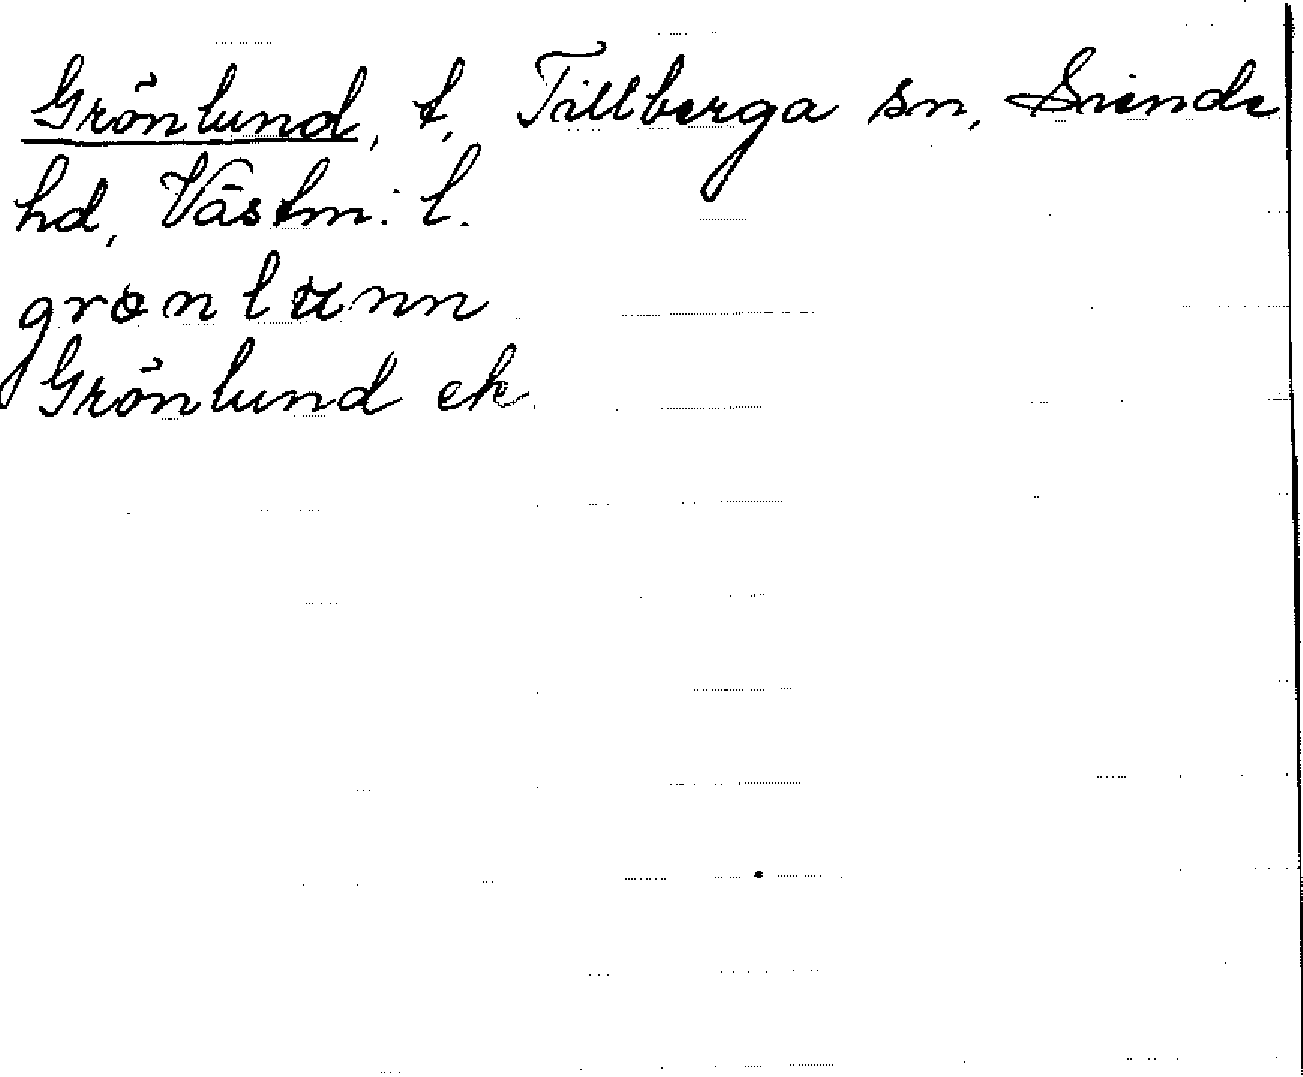 Grönlund, t, Tillberga sn, Siende
hd, Västm: l.
grønlunn
Grönlund ek